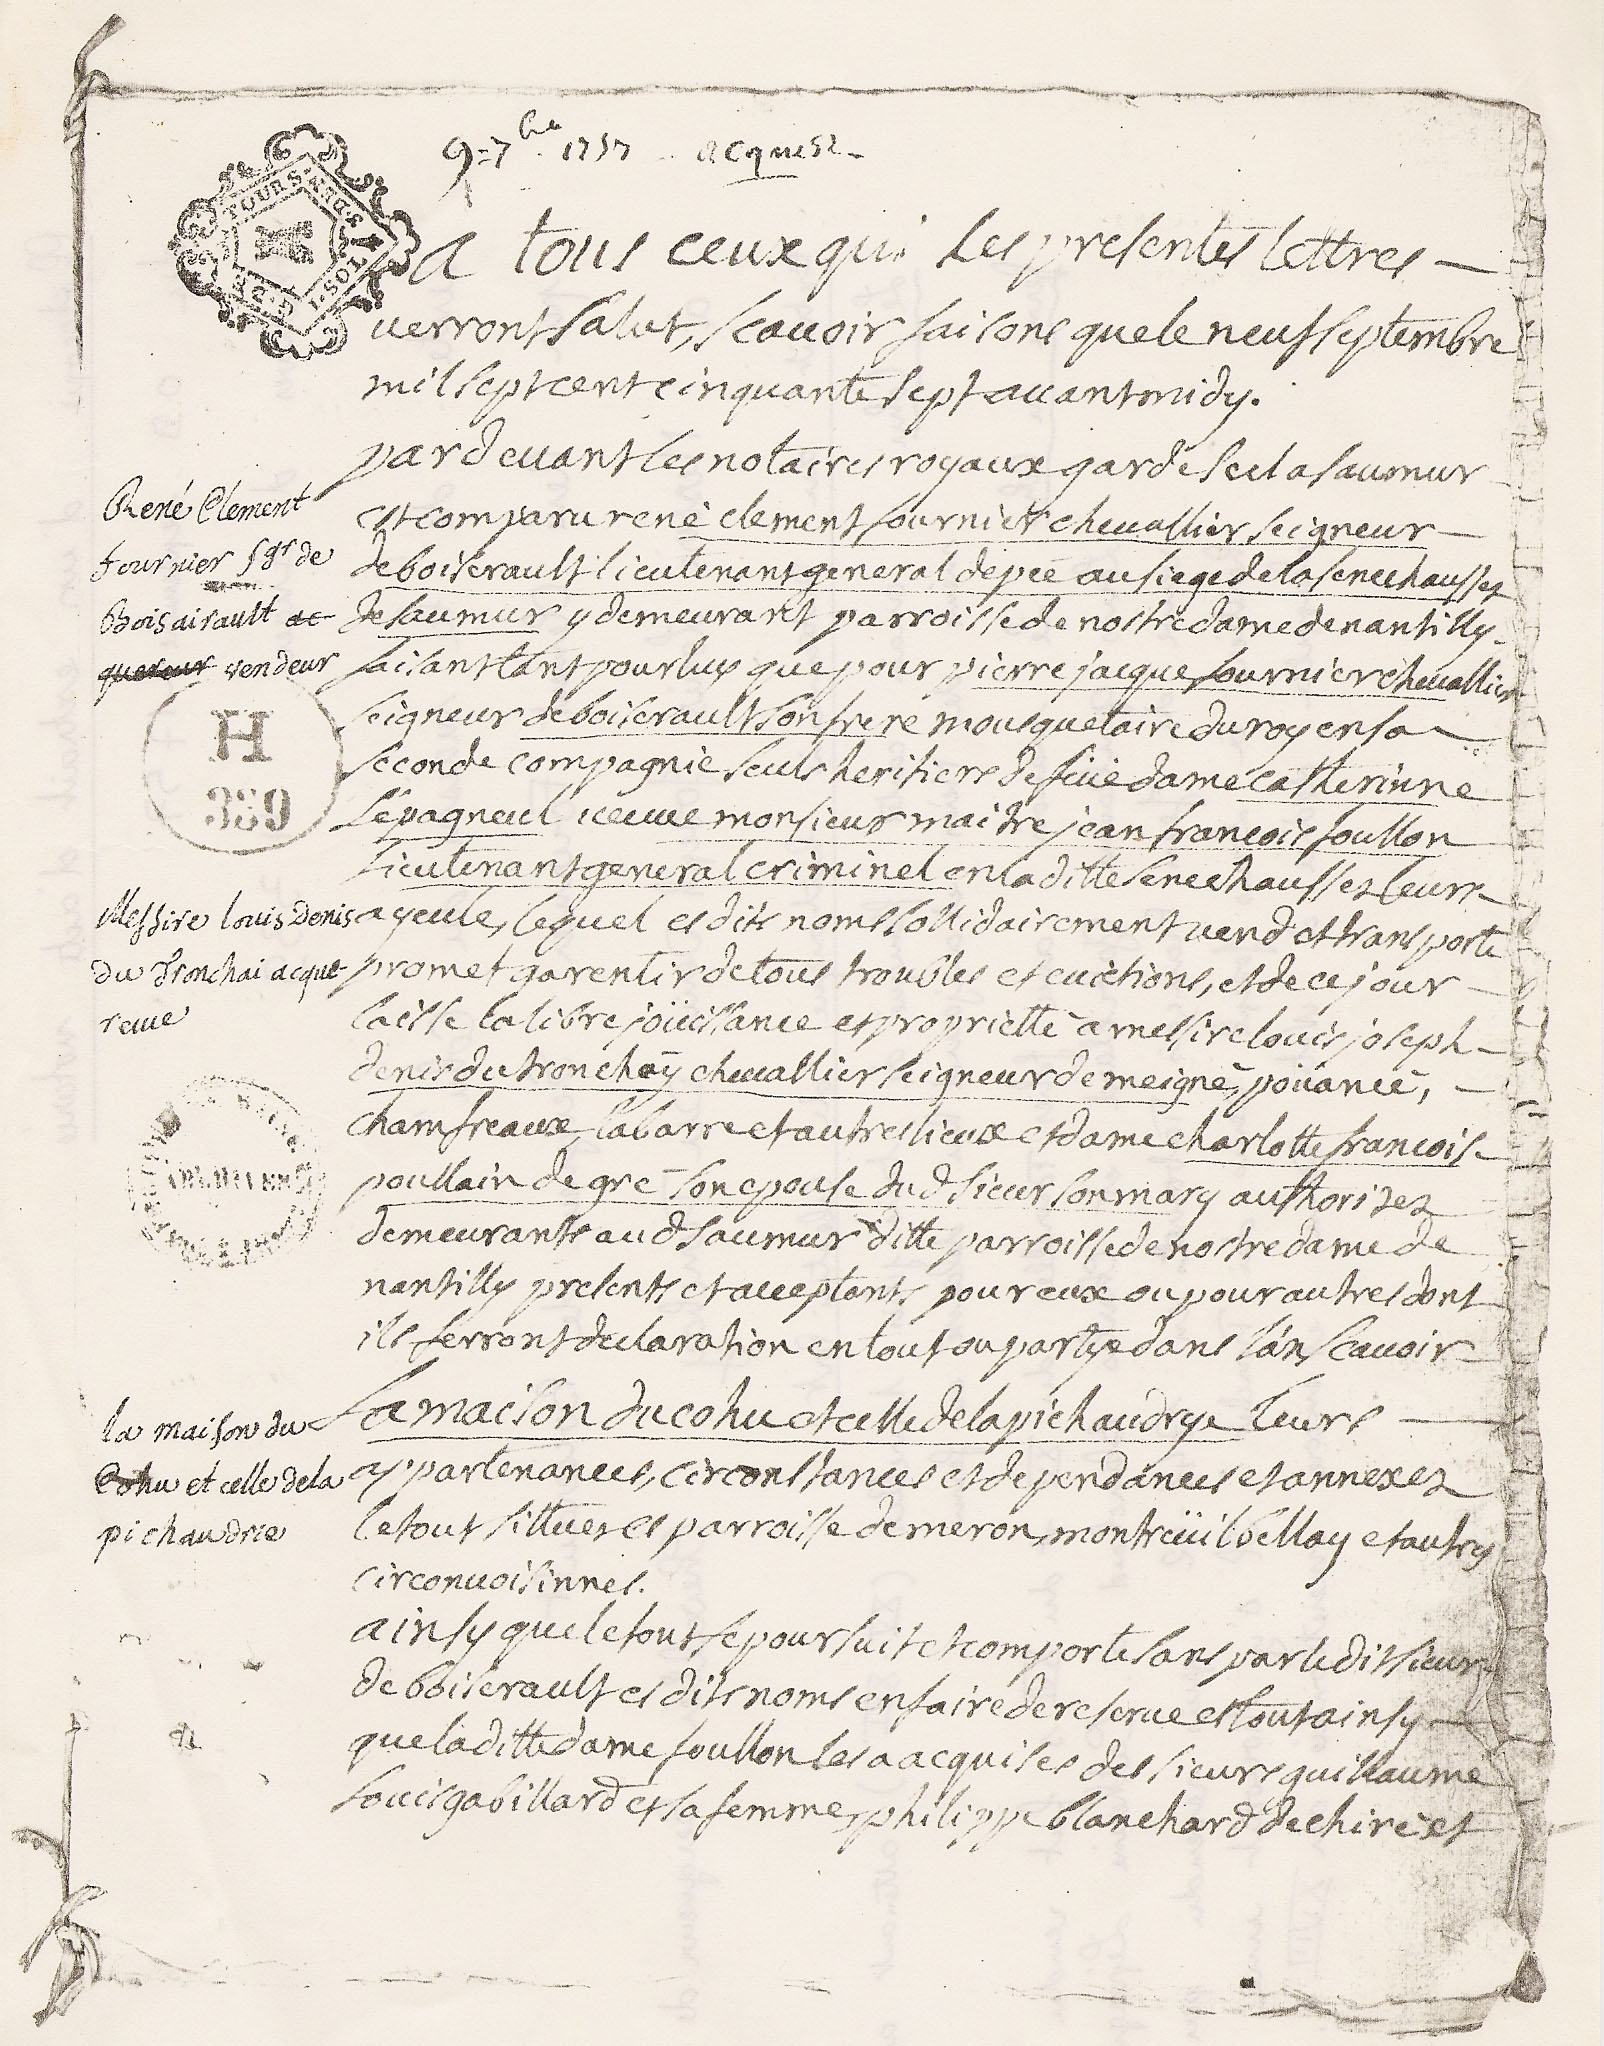 9=7bre 1757 acquest
TOURS
1·SOL
A tous ceux qui les presentes lettres
verront salut, scavoir faisons que le neuf septembre
mil sept cent cinquante sept avant midy.
pardevant les notaires royaux gardescel a saumur
est comparu rené clement fournier chevallier seigneur
de boiserault lieutenant general depeé au siege de la senechaussez
de saumur y demeurant parroisse de nostre dame de nantilly
faisant tant pour luy que pour pierre jacque fournier chevallier
seigneur de boiserault son frere mousquetaire du roy en sa
seconde compagnie seuls heritiers de füe dame catherinne
L'epagneul veuve monsieur maitre jean francois foullon
Lieutenant general criminel en la ditte senechaussez leurs
ayeule, lequel es dits noms sollidairement vend et transporte
promet garentir de tous troubles et evictions, et de ce jour
laisse la libre joüissance et proprietté a messire louis joseph
denis du tronchay chevallier seigneur de meigné, poüancé,
chamfreaux, labarre et autres lieux et dame charlotte francois
poullain de gré son epouse dud sieur son mary authorisez
demeurants aud saumur ditte parroisse de nostre dame de
nantilly presents et acceptants pour eux ou pour autres dont
ils ferront declaration en tout ou partye dans l'an, scavoir
La maison du cohu et celle de la pichaudrye leurs
appartenances, circonstances et dependances et annexez
le tout sittuez es parroisse de meron, montreüil bellay et autres
circonvoisinnes.
ainsy que le tout se poursuit et comporte sans par le dit sieur
de boiserault es dits noms en faire de reserve et tout ainsy
que la ditte dame foullon les a acquises des sieurs guillaume
Louis gabillard et sa femme, philippe blanchard de chiré et
René Clément
fournier sgr de
Boisairault ac
quereur vendeur
H
339
Messire louis Denis
du Tronchai acque-
reur
la maison du
Cohu et celle de la
pichaudrie